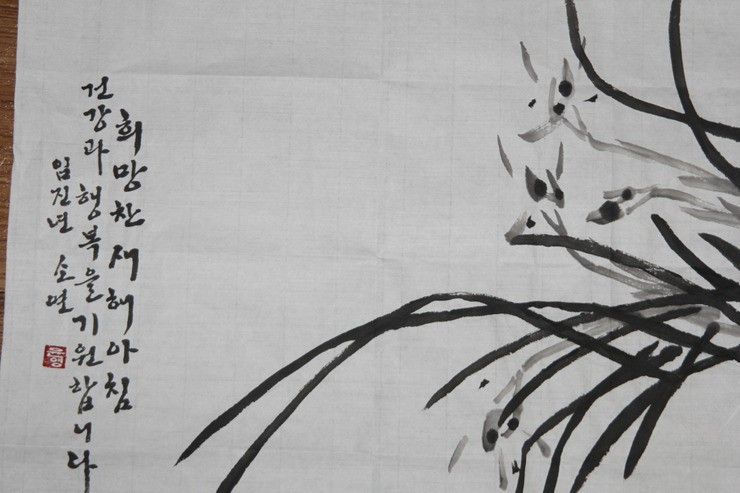 희망찬 새해 아침
건강과 행복을 기원합니다
임진년 소연